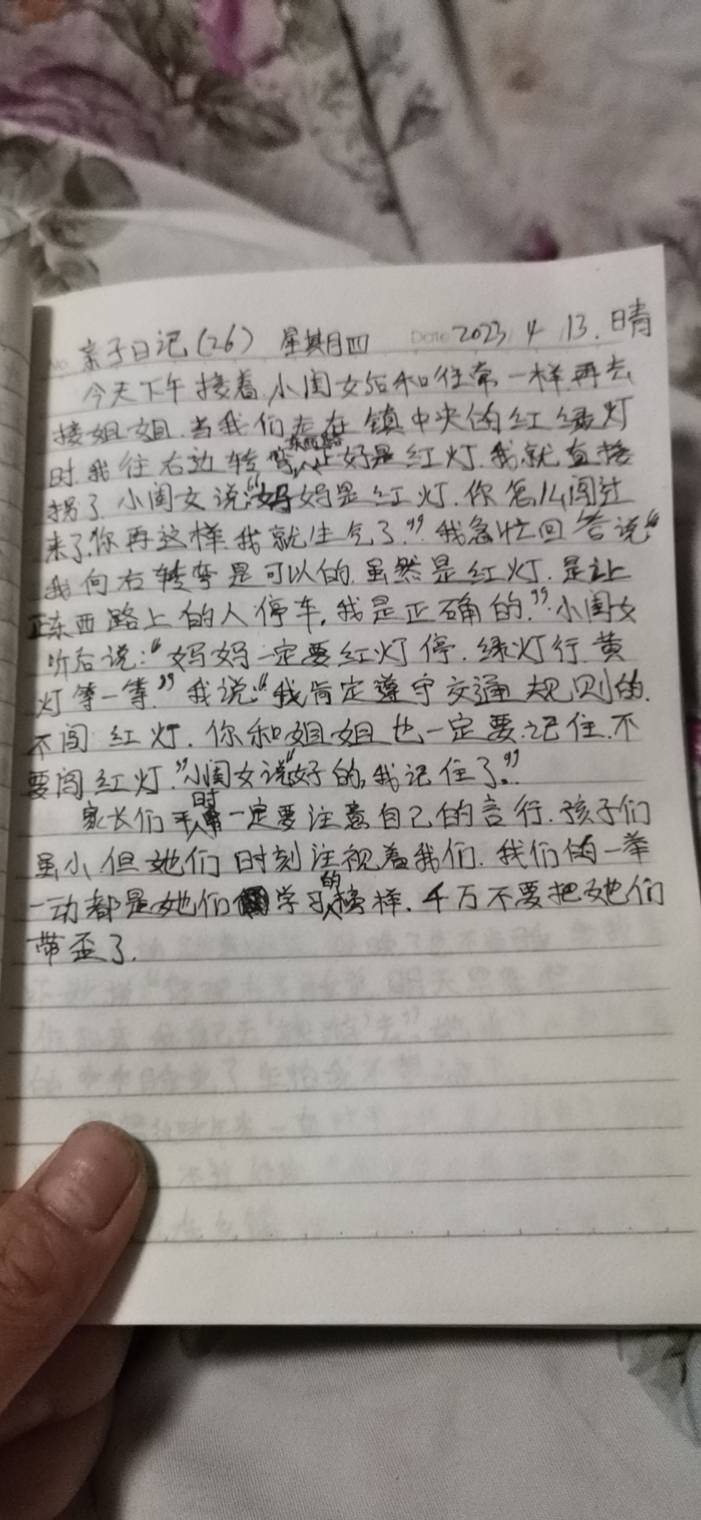 亲子日记(26) 星期四 Date 2023 4 13. 晴
今天下午接着小闺女后和往常一样再去
接姐姐.当我们走在镇中央的红绿灯
时.我往右边转弯东西路正好是红灯.我就直接
拐了.小闺女说:“妈妈是红灯.你怎么闯过
来了.你再这样我就生气了.”我急忙回答说“
我向右转弯是可以的.虽然是红灯.是让
正东西路上的人停车,我是正确的.”小闺女
听后说:“妈妈一定要红灯停.绿灯行.黄
灯等一等.”我说:“我肯定遵守交通规则的.
不闯红灯.你和姐姐也一定要记住.不
要闯红灯.”小闺女说“好的,我记住了.”
家长们平时一定要注意自己的言行.孩子们
虽小但她们时刻注视着我们.我们的一举
一动都是她们学习的榜样.千万不要把她们
带歪了.